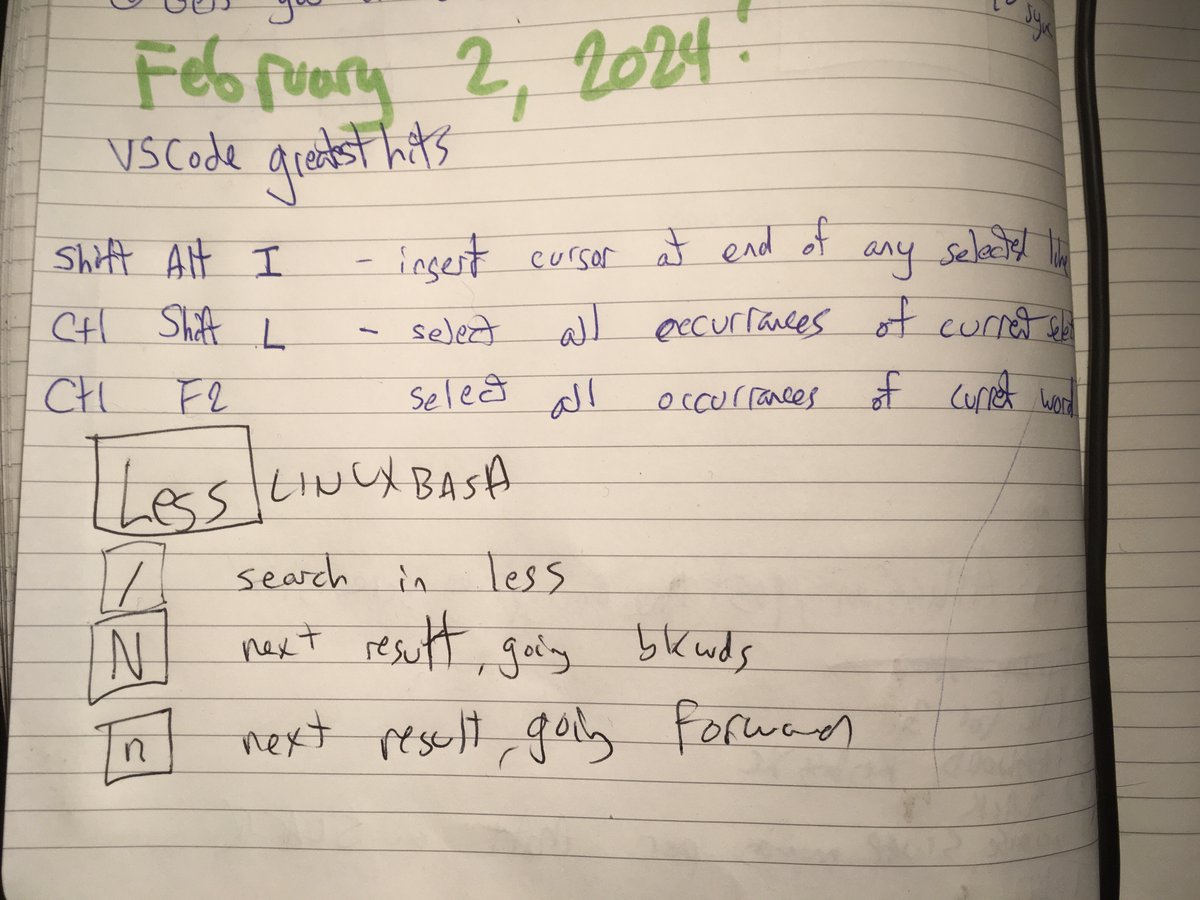 February 2, 2024!
VSCode greatest hits
Shift Alt I - insert cursor at end of any selected line
Ctl Shift L - select all occurrances of current select
Ctl F2 select all occurrances of curret word
Less LINUX BASH
/ search in less
N next result, going bkwds
n next result, going forward